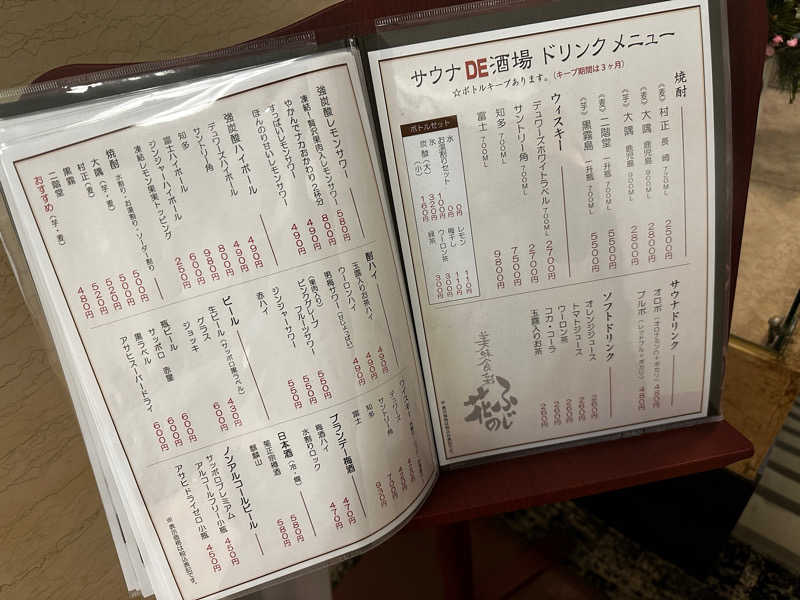 サウナDE酒場 ドリンクメニュー
☆ボトルキープあります。(キープ期間は3ヶ月)
焼酎
《麦》村正 長崎 720ML 2500円
《麦》大隅 鹿児島 900ML 2800円
《芋》大隅 鹿児島 900ML 2800円
《麦》二階堂 一升瓶 5500円
《芋》黒霧島 一升瓶 5500円
ウィスキー
デュワーズホワイトラベル 700ML 2700円
サントリー角 700ML 2700円
知多 700ML 7500円
富士 700ML 9800円
ボトルセット
水 0円
お湯割りセット 0円
氷 100円
炭酸(大) 320円
(小) 160円
レモン 110円
梅干し 110円
ウーロン茶 300円
緑茶 300円
サウナドリンク
オロポ(オロナミンC+ポカリ) 450円
ブルポ(レッドブル+ポカリ) 480円
ソフトドリンク
オレンジジュース 260円
トマトジュース 260円
ウーロン茶 260円
コカ・コーラ 260円
玉露入りお茶 260円
美味食彩
ふじの花
強炭酸レモンサワー 580円
凍結・贅沢果肉入レモンサワー 800円
やかんでナカおかわり2杯分 490円
すっぱいレモンサワー 490円
ほんのり甘いレモンサワー
強炭酸ハイボール
デュワーズハイボール 490円
サントリー角 490円
知多 800円
富士ハイボール 980円
ジンジャーハイボール 600円
凍結レモン果実トッピング 250円
焼酎 水割り・お湯割り・ソーダー割り
大隅(芋・麦) 500円
村正(麦) 500円
黒霧 520円
二階堂 520円
おすすめ(芋・麦) 480円
酎ハイ
玉露入りお茶ハイ 490円
ウーロンハイ 490円
男梅サワー(甘じょっぱい) 490円
(果肉入り)
ピンクグレープフルーツサワー 550円
ジンジャーサワー 550円
赤ハイ 550円
ビール
生ビール(サッポロ黒ラベル)
グラス 430円
ジョッキ 600円
瓶ビール
サッポロ 赤星 600円
黒ラベル 600円
アサヒスーパードライ 600円
ウィスキー
デュワーズ
サントリー角
知多 700円
富士
ブランデー梅酒
梅酒ハイ 470円
水割りロック 470円
日本酒(冷・燗)
菊正宗樽酒 580円
麒麟山 680円
ノンアルコールビール
サッポロプレミアム
アルコールフリー小瓶 450円
アサヒドライゼロ小瓶 450円
※表示価格は税込表記です。